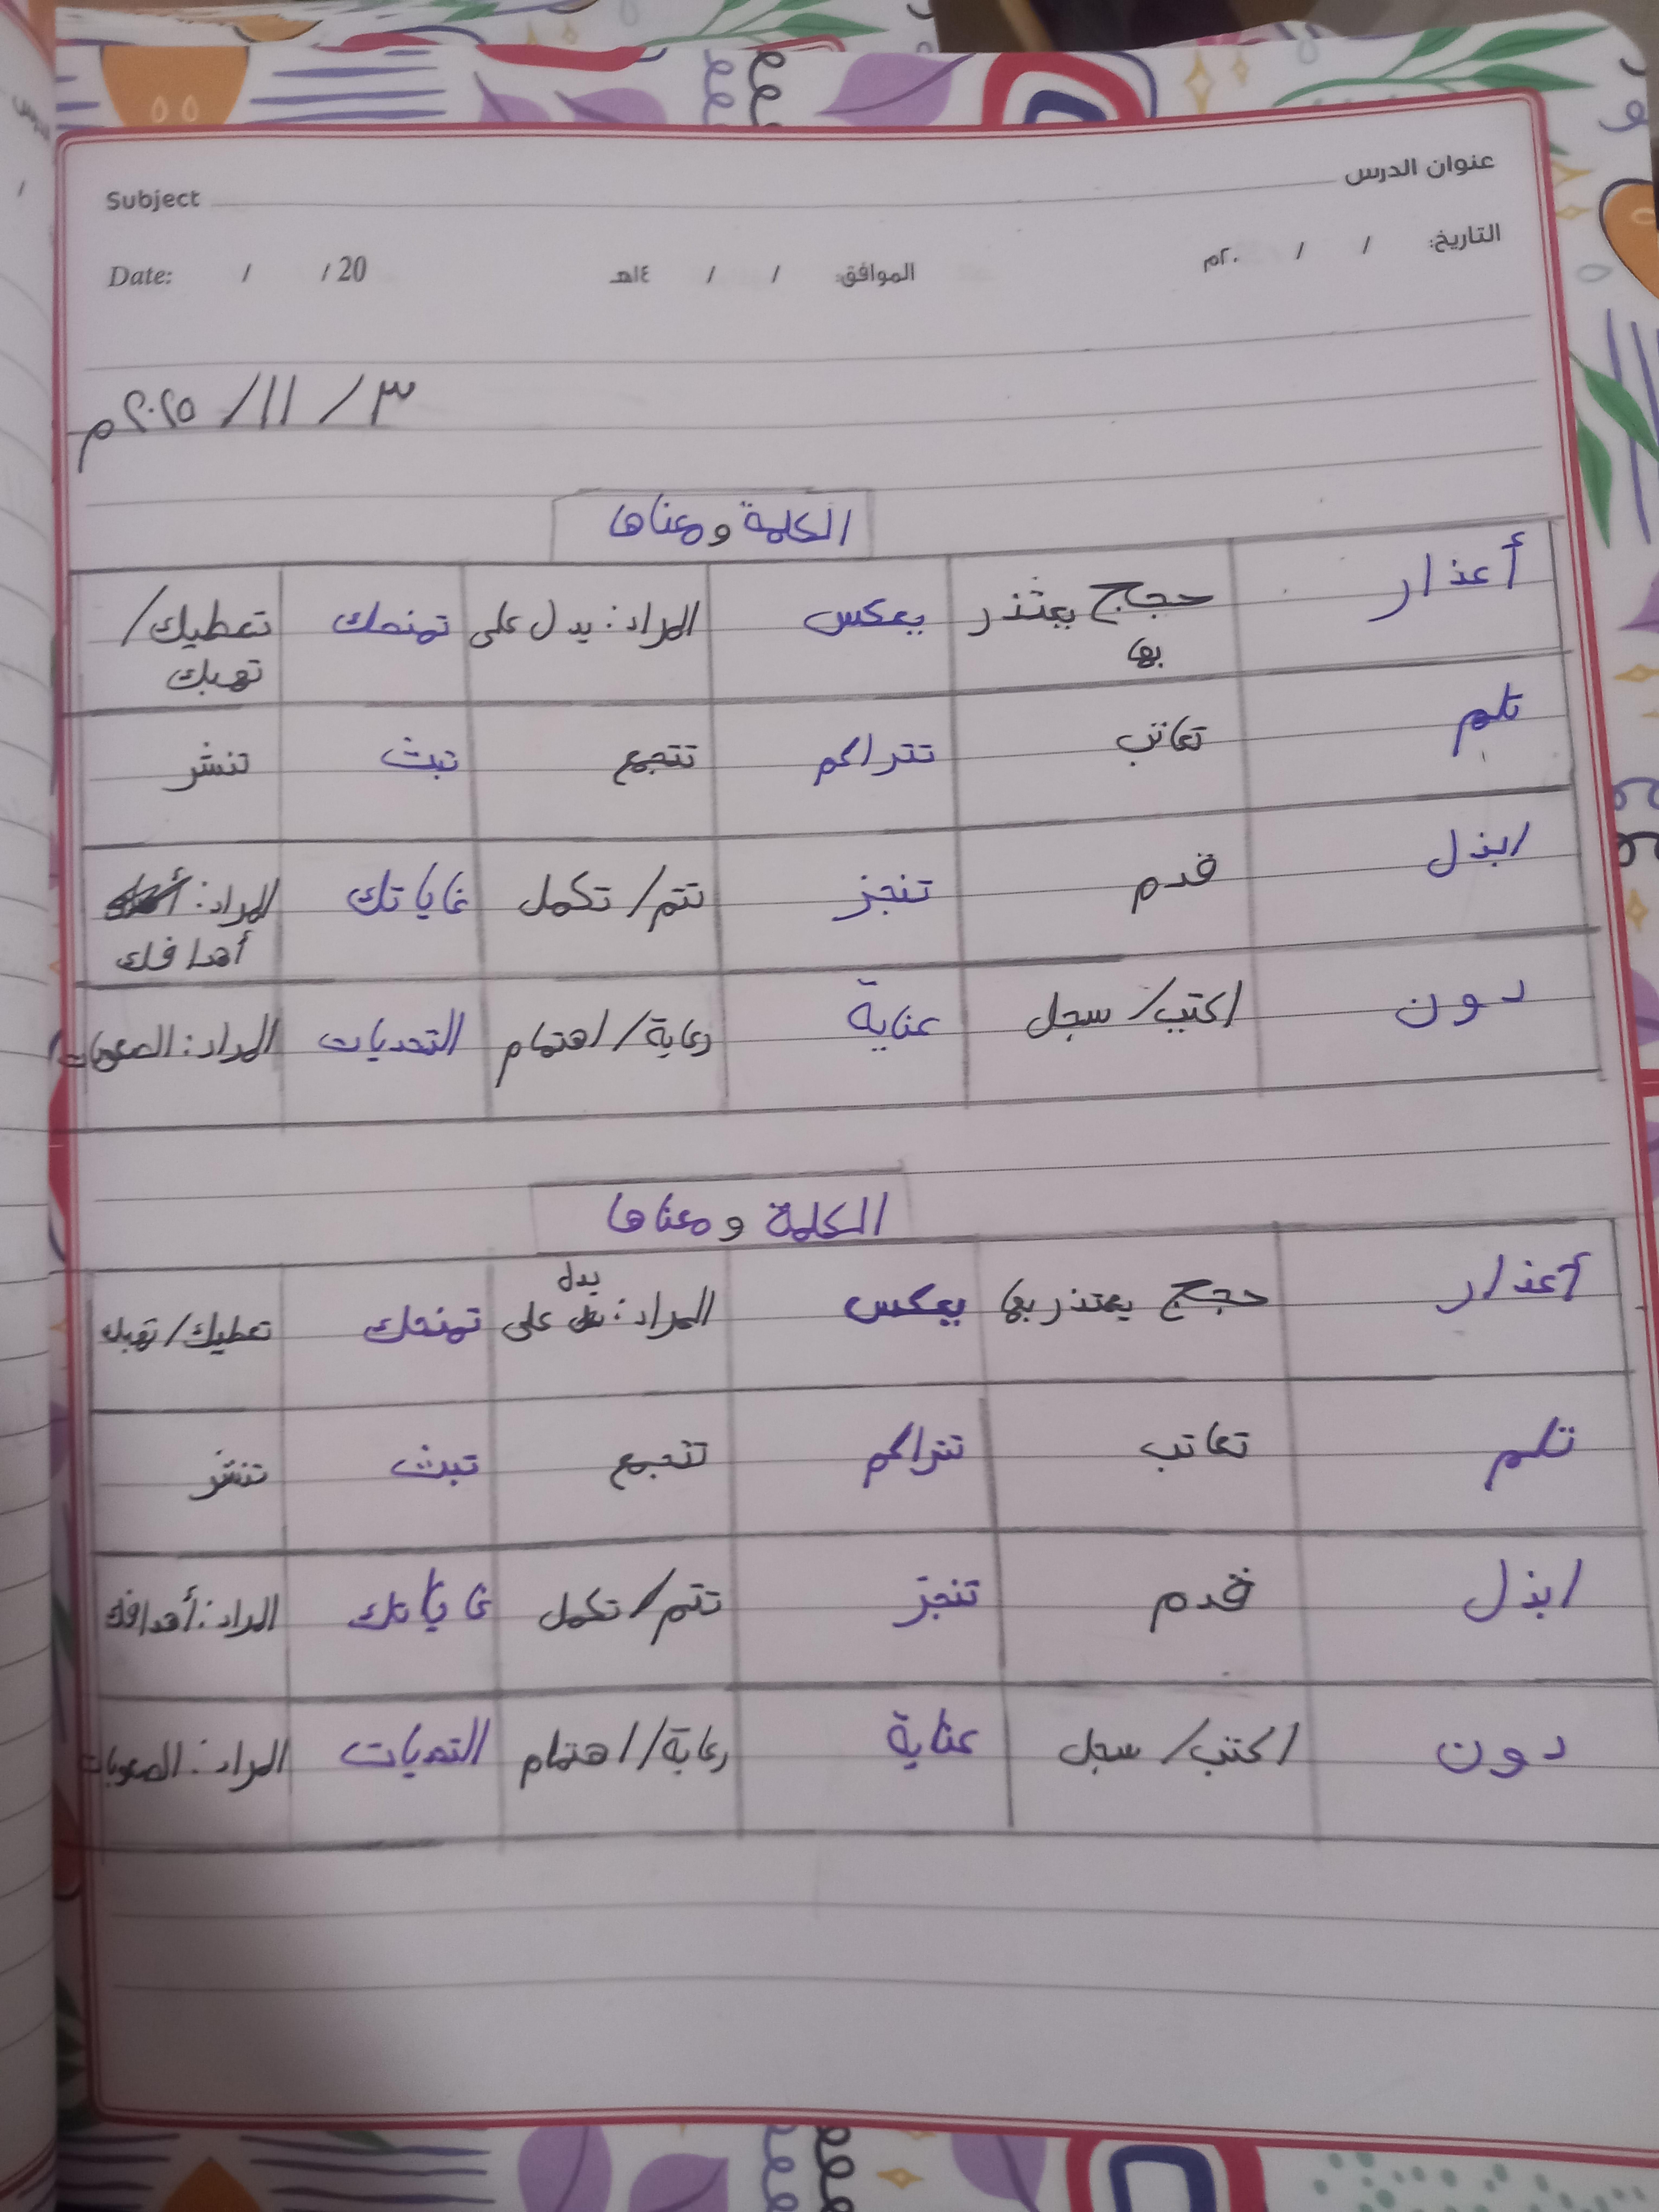 عنوان الدرس Subject
التاريخ: / / ٢٠م الموافق: / / ١٤هـ Date: / / 20
٣ / ١١ / ٢٠٢٥م
الكلمة ومعناها
أعذار حجج يعتذر بها يعكس المراد: يدل على تمنحك تعطيك/ تهبك
تلم تعاتب تتراكم تتجمع تبث تنشر
ابذل قدم تنجز تتم/تكمل غاياتك المراد: أهدافك
دون اكتب/سجل عناية رعاية/اهتمام التحديات المراد: الصعوبات
الكلمة ومعناها
أعذار حجج يعتذر بها يعكس المراد: يدل على تمنحك تعطيك/تهبك
تلم تعاتب تتراكم تتجمع تبث تنشر
ابذل قدم تنجز تتم/تكمل غاياتك المراد: أهدافك
دون اكتب/سجل عناية رعاية/اهتمام التحديات المراد: الصعوبات